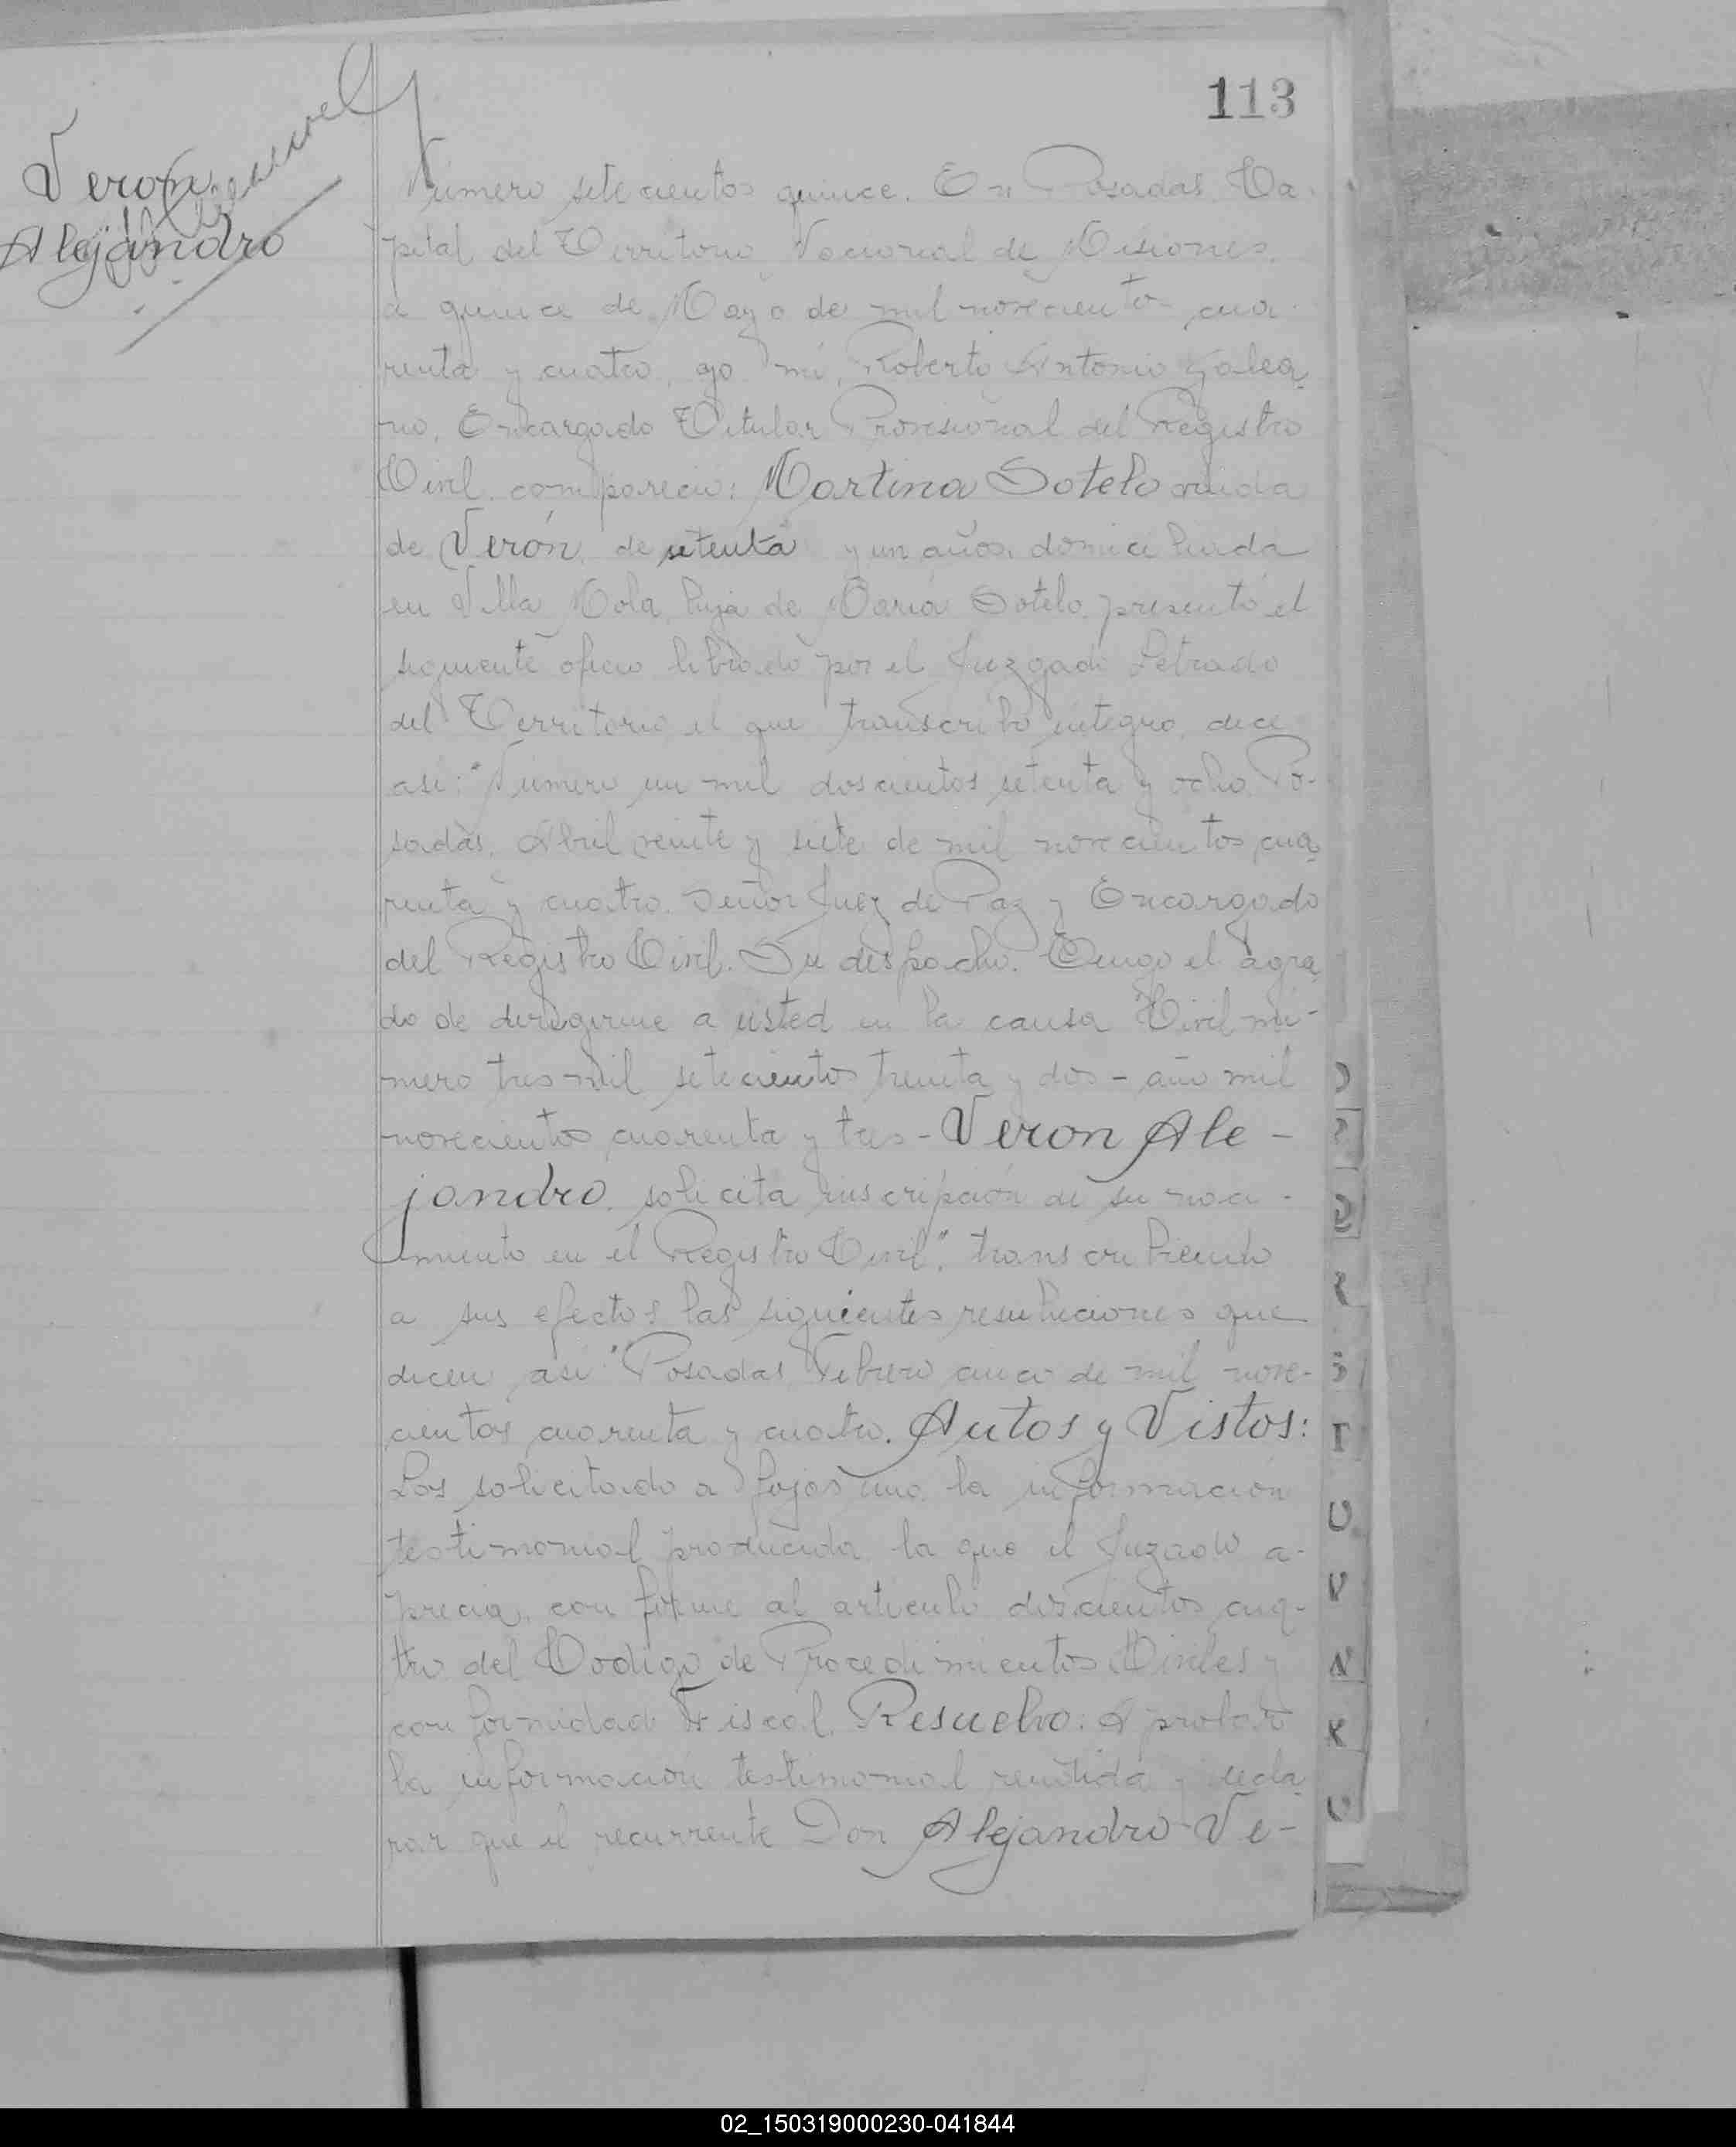 113
Veron
Alejandro
Número setecientos quince. En Posadas, Ca-
pital del Territorio Nacional de Misiones,
a quince de Mayo de mil novecientos cua-
renta y cuatro, yo mi, Roberto Antonio Galea-
no, Encargado Titular Provisional del Registro
Civil, compareció: Martina Sotelo viuda
de Verón, de setenta y un años, domiciliada
en Villa Mola, hija de María Sotelo, presentó el
siguiente oficio librado por el Juzgado Letrado
del Territorio, el que transcribo íntegro, dice
así: "Número un mil doscientos setenta y ocho. Po-
sadas, Abril veinte y siete de mil novecientos cua-
renta y cuatro. Señor Juez de Paz y Encargado
del Registro Civil. Su despacho. Tengo el agra-
do de dirigirme a usted en la causa Civil nú-
mero tres mil setecientos treinta y dos - año mil
novecientos cuarenta y tres - Veron Ale-
jandro, solicita inscripción de su naci-
miento en el Registro Civil", transcribiendo
a sus efectos las siguientes resoluciones que
dicen así "Posadas, Febrero cinco de mil nove-
cientos cuarenta y cuatro. Autos y Vistos:
Los solicitado a fojas uno, la información
testimonial producida, la que el Juzgado a-
precia, conforme al artículo doscientos cua-
tro del Codigo de Procedimientos Civiles y
conformidad Fiscal, Resuelvo: Aprobar
la información testimonial rendida y decla-
rar que el recurrente Don Alejandro Ve-
02_150319000230-041844